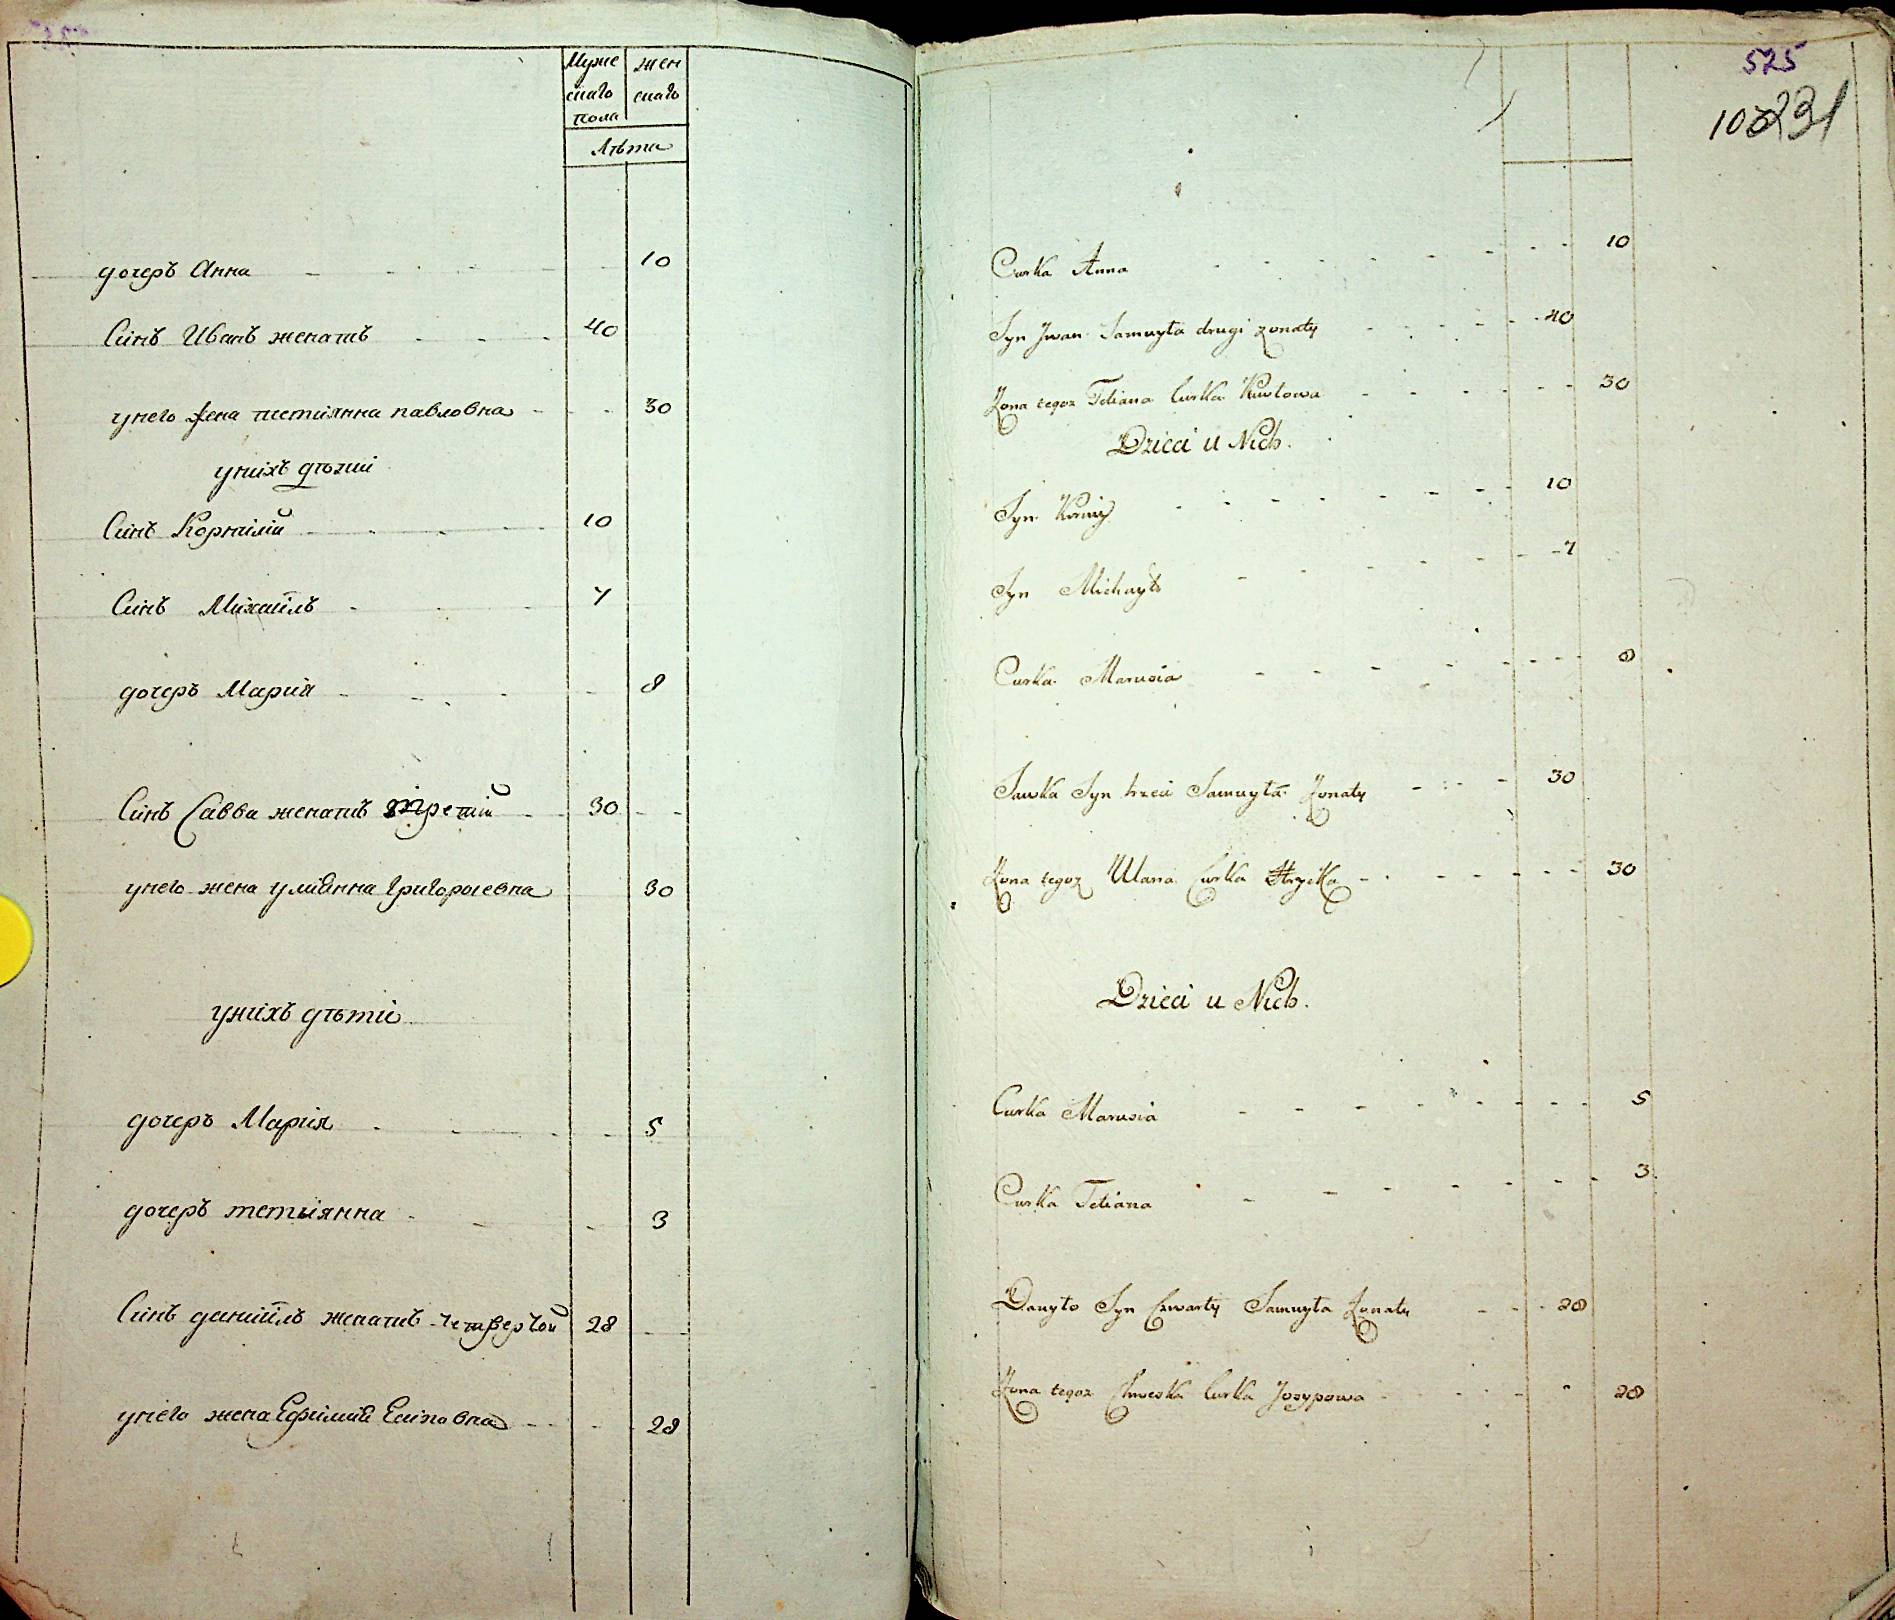 Муже
скаго
пола
жен
скаго
Лѣта
дочеръ Анна 10
Синъ Иванъ женатъ 40
унего жена тетиянна павловна 30
унихъ дѣтий
Синъ Корнилій 10
Синъ Михаилъ 7
дочеръ Мария 8
Синъ Савва женатъ третий 30
унего жена улиянна Григориевна 30
унихъ дѣтие
дочеръ Мария 5
дочеръ тетиянна 3
Синъ даниилъ женатъ четвертой 28
унего жена Ефимия Есиповна 28
525
231
Curka Anna 10
Syn Jwan Samuyła drugi zonaty 40
Zona tegoz Tetiana Curka 30
Dzieci u Nich.
Syn 10
Syn Michayło 7
Curka Marusia 8
Sawka Syn trzeci Samuyła Zonaty 30
Zona tegoz Ulana Curka Hrycka 30
Dzieci u Nich.
Curka Marusia 5
Curka Tetiana 3
Danyło Syn Czwarty Samuyła Zonaty 28
Zona tegoz Curka Jozypowa 28